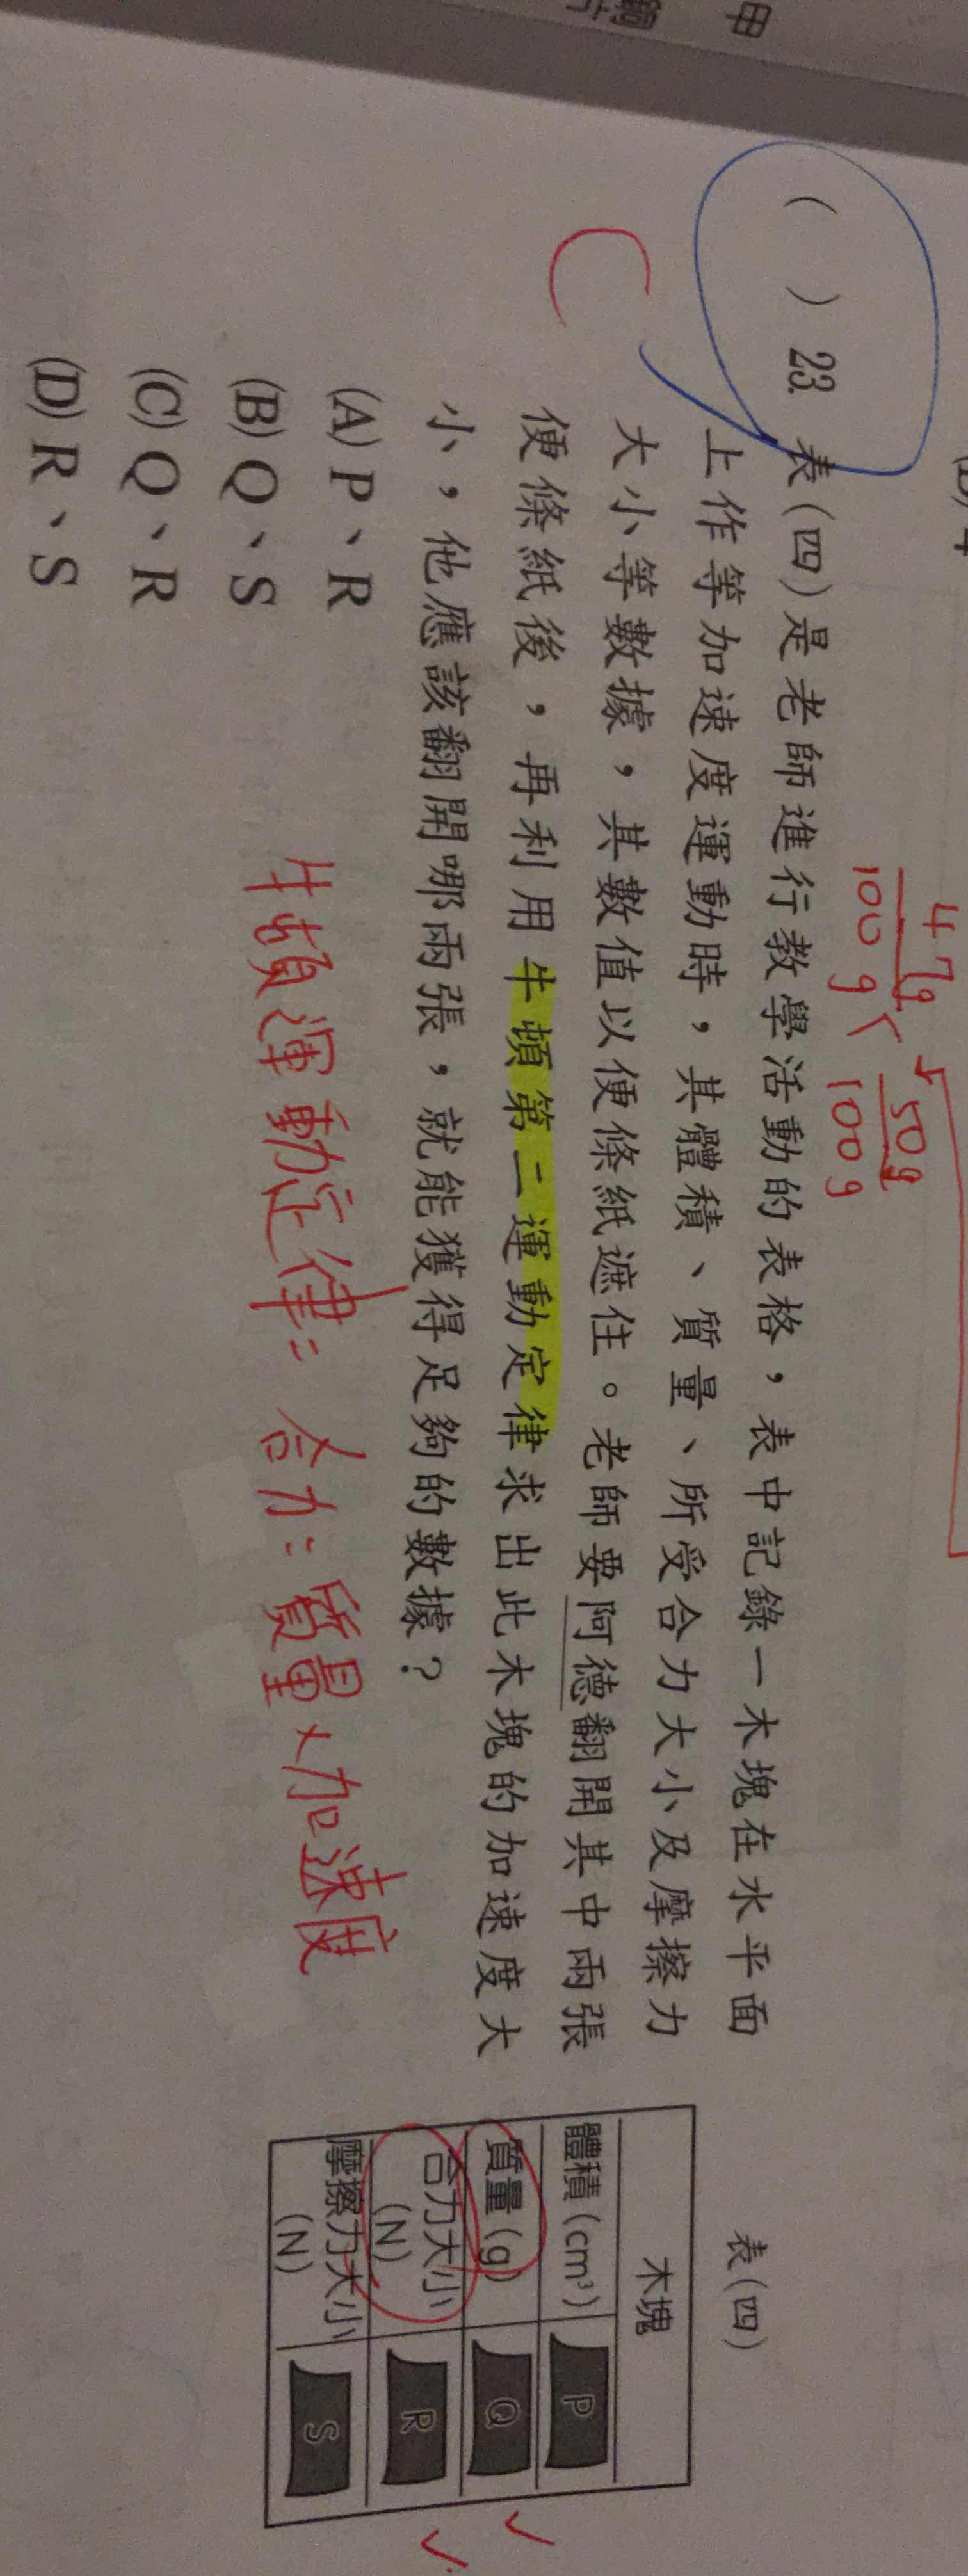 甲
4 7g
100 g <
50g
100 g
( ) 23. 表(四)是老師進行教學活動的表格,表中記錄一木塊在水平面
上作等加速度運動時,其體積、質量、所受合力大小及摩擦力
大小等數據,其數值以便條紙遮住。老師要阿德翻開其中兩張
便條紙後,再利用牛頓第二運動定律求出此木塊的加速度大
小,他應該翻開哪兩張,就能獲得足夠的數據?
C
(A) P、R
(B) Q、S
(C) Q、R
(D) R、S
牛頓運動定律: 合力=質量×加速度
表(四)
木塊
體積(cm³) P
質量(g) Q
合力大小
(N) R
摩擦力大小
(N) S